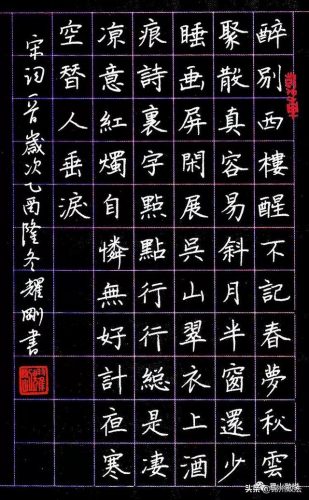 醉別西樓醒不記春夢秋雲
聚散真容易斜月半窗還少
睡画屏閑展吳山翠衣上酒
痕詩裏字點點行行緫是凄
凉意紅燭自憐無好計亱寒
空替人垂淚
宋词一首歲次乙酉隆冬耀剛書